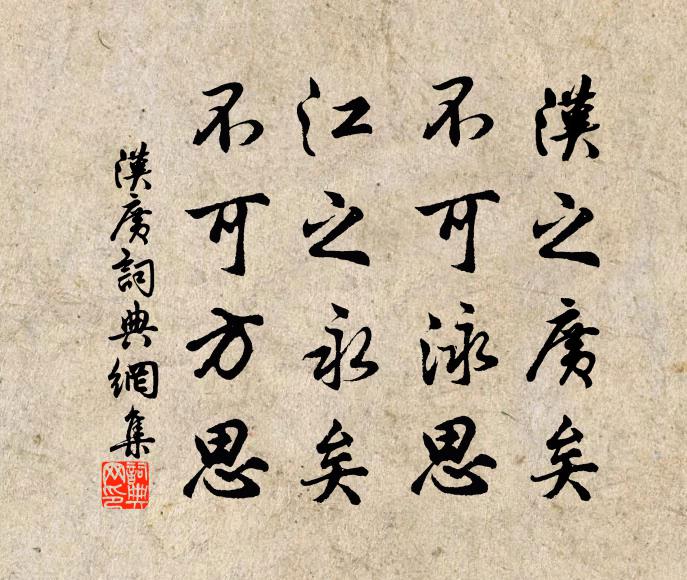 漢之廣矣
不可泳思
江之永矣
不可方思
漢廣詞典網集
詞典網印